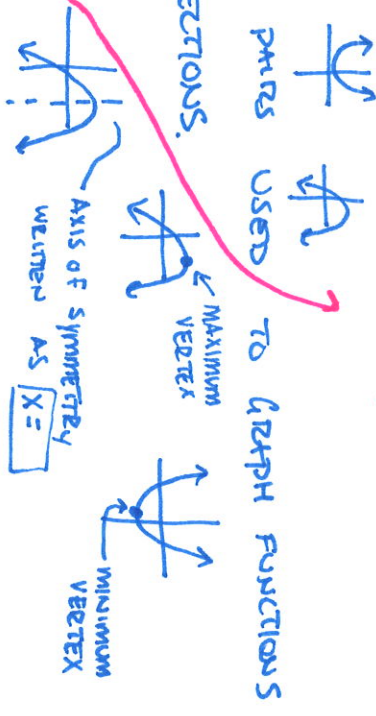 PAIRS USED TO GRAPH FUNCTIONS
ECTIONS.
MAXIMUM
VERTEX
MINIMUM
VERTEX
AXIS OF SYMMETRY
WRITTEN AS X=